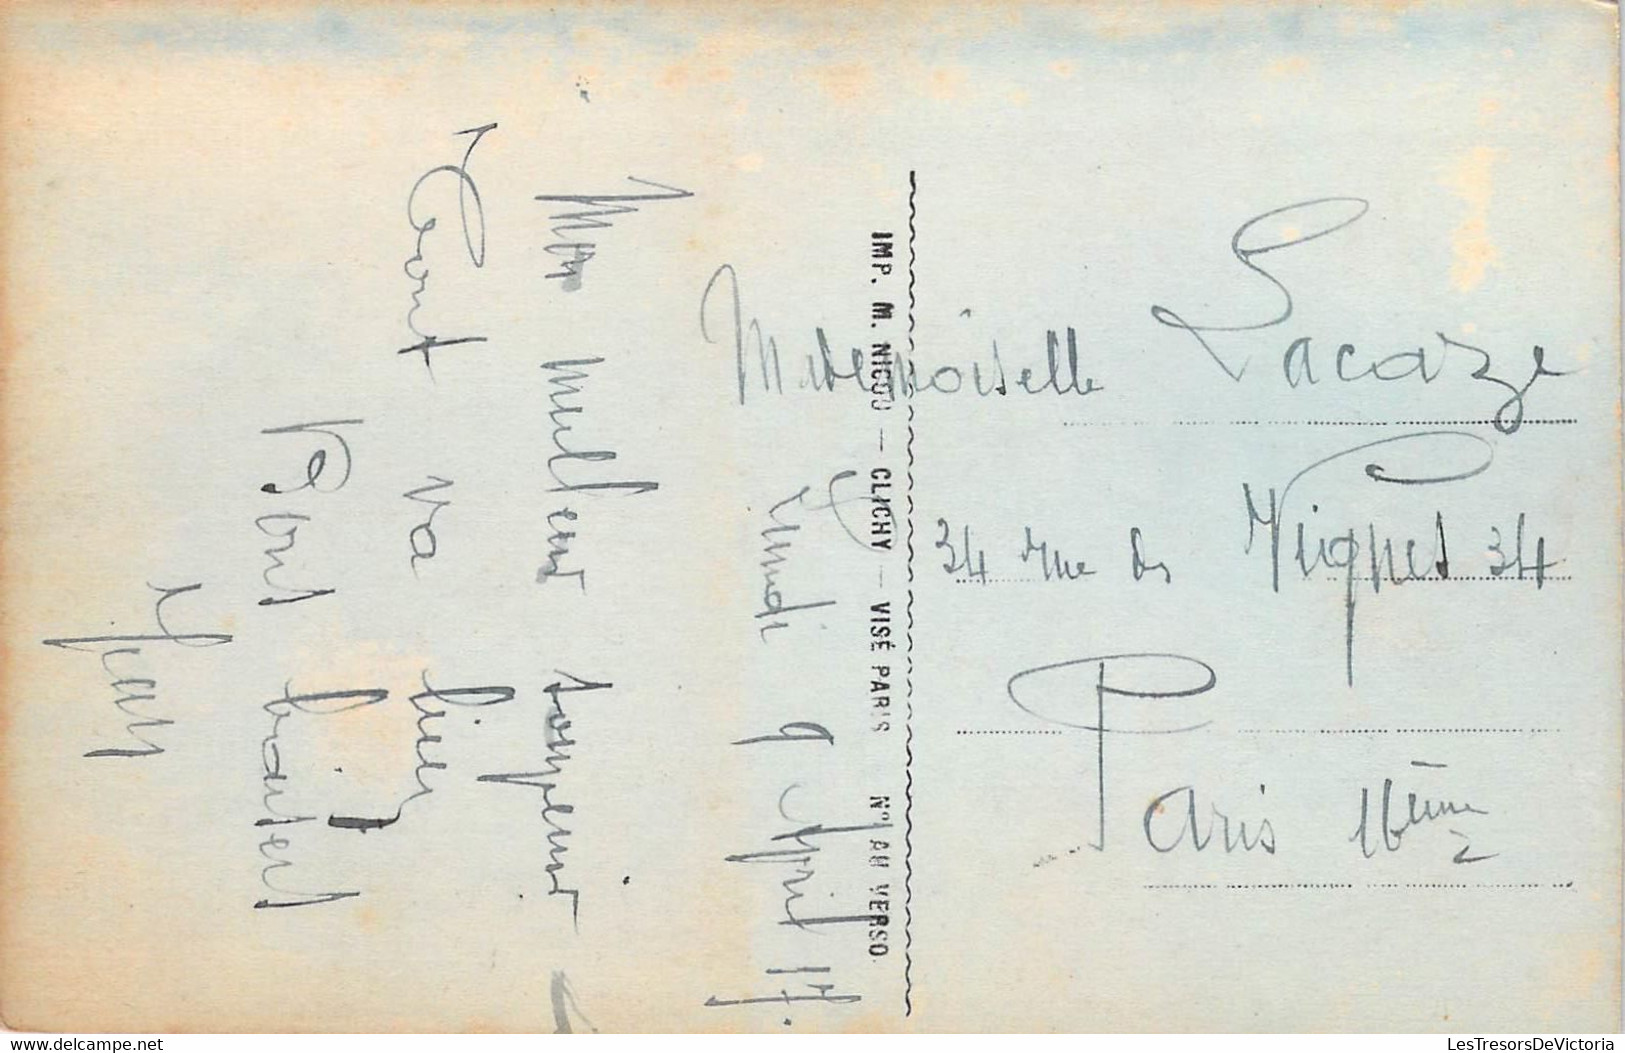 Lundi 9 April 17.
Mon meilleur souvenir
Tout va bien !
Bons baisers
Jean
IMP. M. NICOD — CLICHY — VISÉ PARIS N° AU VERSO.
Mademoiselle Lacaze
34 rue des Vignes 34
Paris 16ème
delcampe.net
LesTresorsDeVictoria